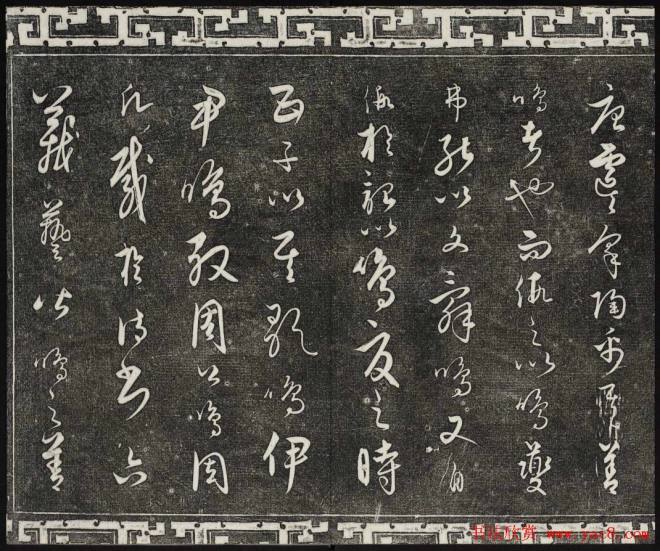 唐虞咎陶禹其善
鳴者也而假之以鳴夔
弗能以文辭鳴又自
假於韶以鳴夏之時
五子以其歌鳴伊
尹鳴殷周公鳴周
凡載於詩書六
藝皆鳴之善
书法欣赏 www.yac8.com